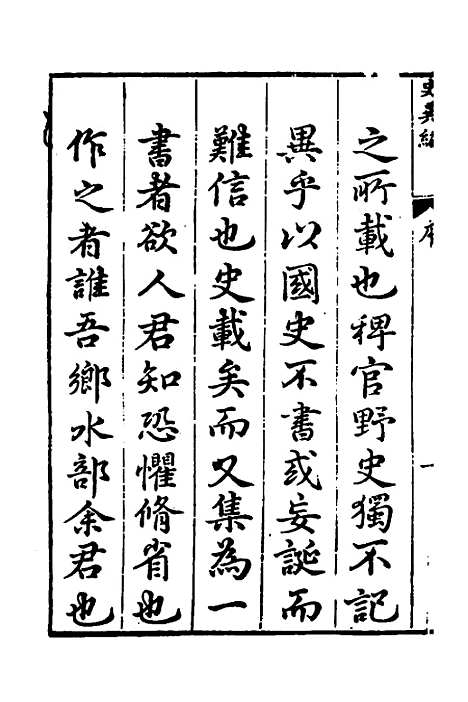 史異編
序
一
之所載也稗官野史獨不記
異乎以國史不書或妄誕而
難信也史載矣而又集為一
書者欲人君知恐懼脩省也
作之者誰吾鄉水部余君也